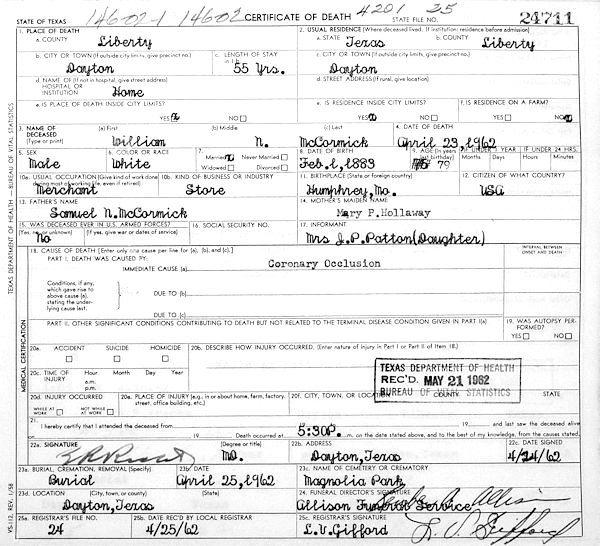 STATE OF TEXAS 14602-1 14602 CERTIFICATE OF DEATH 4201 25 STATE FILE NO. 24711
1. PLACE OF DEATH
a. COUNTY Liberty
2. USUAL RESIDENCE (Where deceased lived. If institution: residence before admission)
a. STATE Texas b. COUNTY Liberty
b. CITY OR TOWN (If outside city limits, give precinct no.) Dayton
c. LENGTH OF STAY in 1 b 55 Yrs.
c. CITY OR TOWN (If outside city limits, give precinct no.) Dayton
d. NAME OF (If not in hospital, give street address) HOSPITAL OR INSTITUTION Home
d. STREET ADDRESS (If rural, give location)
e. IS PLACE OF DEATH INSIDE CITY LIMITS?
YES X NO
e. IS RESIDENCE INSIDE CITY LIMITS?
YES X NO
f. IS RESIDENCE ON A FARM?
YES NO X
3. NAME OF DECEASED (Type or print)
(a) First William (b) Middle N. (c) Last McCormick
4. DATE OF DEATH April 23, 1962
5. SEX Male
6. COLOR OR RACE White
7. Married X Never Married Widowed Divorced
8. DATE OF BIRTH Feb. 1, 1883
9. AGE (In years last birthday) 79
IF UNDER 1 YEAR Months Days
IF UNDER 24 HRS. Hours Min.
10a. USUAL OCCUPATION (Give kind of work done during most of working life, even if retired) Merchant
10b. KIND OF BUSINESS OR INDUSTRY Store
11. BIRTHPLACE (State or foreign country) Humphrey, Mo.
12. CITIZEN OF WHAT COUNTRY? USA
13. FATHER'S NAME Samuel N. McCormick
14. MOTHER'S MAIDEN NAME Mary P. Hollaway
15. WAS DECEASED EVER IN U.S. ARMED FORCES? (Yes, no, or unknown) (If yes, give war or dates of service) No
16. SOCIAL SECURITY NO.
17. INFORMANT Mrs J.P. Patton (Daughter)
18. CAUSE OF DEATH [Enter only one cause per line for (a), (b), and (c).]
INTERVAL BETWEEN ONSET AND DEATH
PART I. DEATH WAS CAUSED BY:
IMMEDIATE CAUSE (a) Coronary Occlusion
Conditions, if any, which gave rise to above cause (a), stating the underlying cause last.
DUE TO (b)
DUE TO (c)
PART II. OTHER SIGNIFICANT CONDITIONS CONTRIBUTING TO DEATH BUT NOT RELATED TO THE TERMINAL DISEASE CONDITION GIVEN IN PART I(a)
19. WAS AUTOPSY PERFORMED?
YES NO
20a. ACCIDENT SUICIDE HOMICIDE
20b. DESCRIBE HOW INJURY OCCURRED. (Enter nature of injury in Part I or Part II of Item 18.)
20c. TIME OF INJURY Hour a.m. p.m. Month Day Year
TEXAS DEPARTMENT OF HEALTH
REC'D. MAY 21 1962
BUREAU OF VITAL STATISTICS
20d. INJURY OCCURRED WHILE AT WORK NOT WHILE AT WORK
20e. PLACE OF INJURY (e.g., in or about home, farm, factory, street, office building, etc.)
20f. CITY, TOWN, OR LOCATION COUNTY
21. I hereby certify that I attended the deceased from 19 19 and last saw the deceased alive
on 19 Death occurred at 5:30P. m. on the date stated above, and to the best of my knowledge, from the causes stated.
22a. SIGNATURE (Degree or title) MD.
22b. ADDRESS Dayton, Texas
22c. DATE SIGNED 4/24/62
23a. BURIAL, CREMATION, REMOVAL (Specify) Burial
23b. DATE April 25, 1962
23c. NAME OF CEMETERY OR CREMATORY Magnolia Park
23d. LOCATION (City, town, or county) (State) Dayton, Texas
24. FUNERAL DIRECTOR'S SIGNATURE Allison Funeral Service
25a. REGISTRAR'S FILE NO. 24
25b. DATE REC'D BY LOCAL REGISTRAR 4/25/62
25c. REGISTRAR'S SIGNATURE L.V. Gifford
TEXAS DEPARTMENT OF HEALTH — BUREAU OF VITAL STATISTICS
MEDICAL CERTIFICATION
VS-112, REV. 1/58